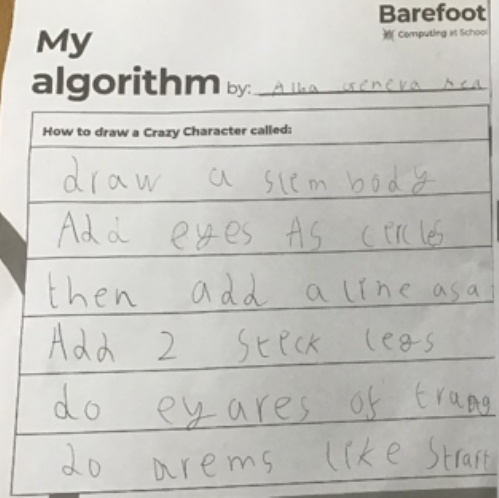 Barefoot
Computing at School
My
algorithm by: Alba Geneva
How to draw a Crazy Character called:
draw a slem body
Add eyes As circles
then add a line as a
Add 2 steck legs
do ey ares of
do arems like